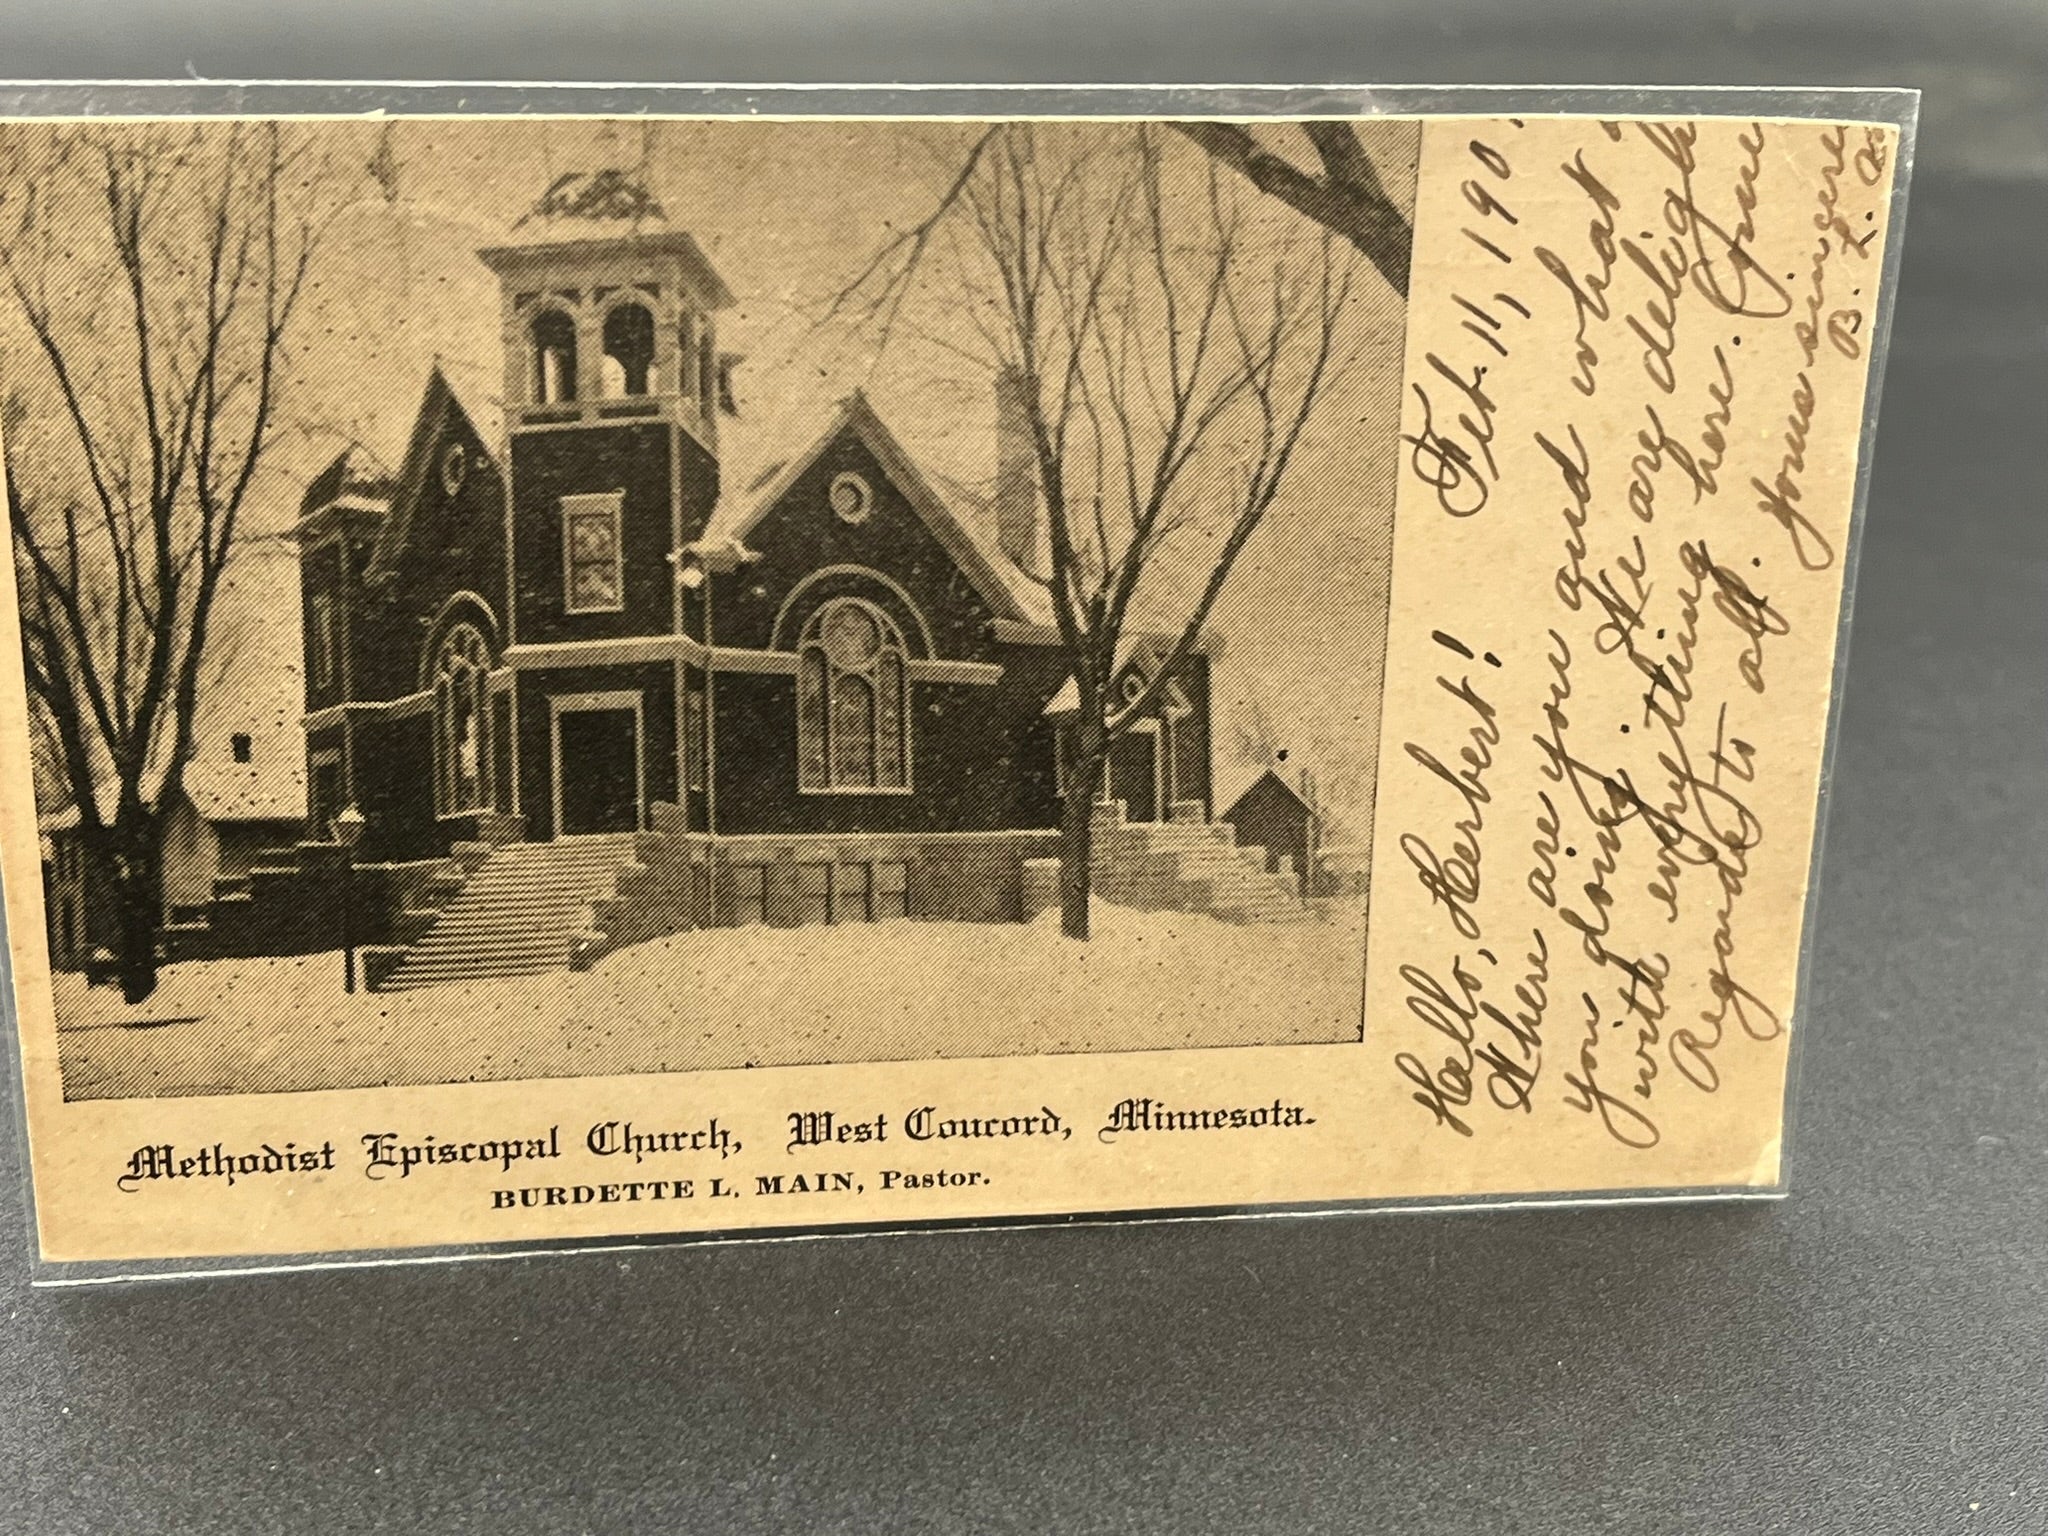 Methodist Episcopal Church, West Concord, Minnesota.
BURDETTE L. MAIN, Pastor.
Hello, Herbert! Feb. 11, 190
Where are you and what
you doing. We are deligh
with everything here. Come
Regards to all. Yours sincere
B. L.